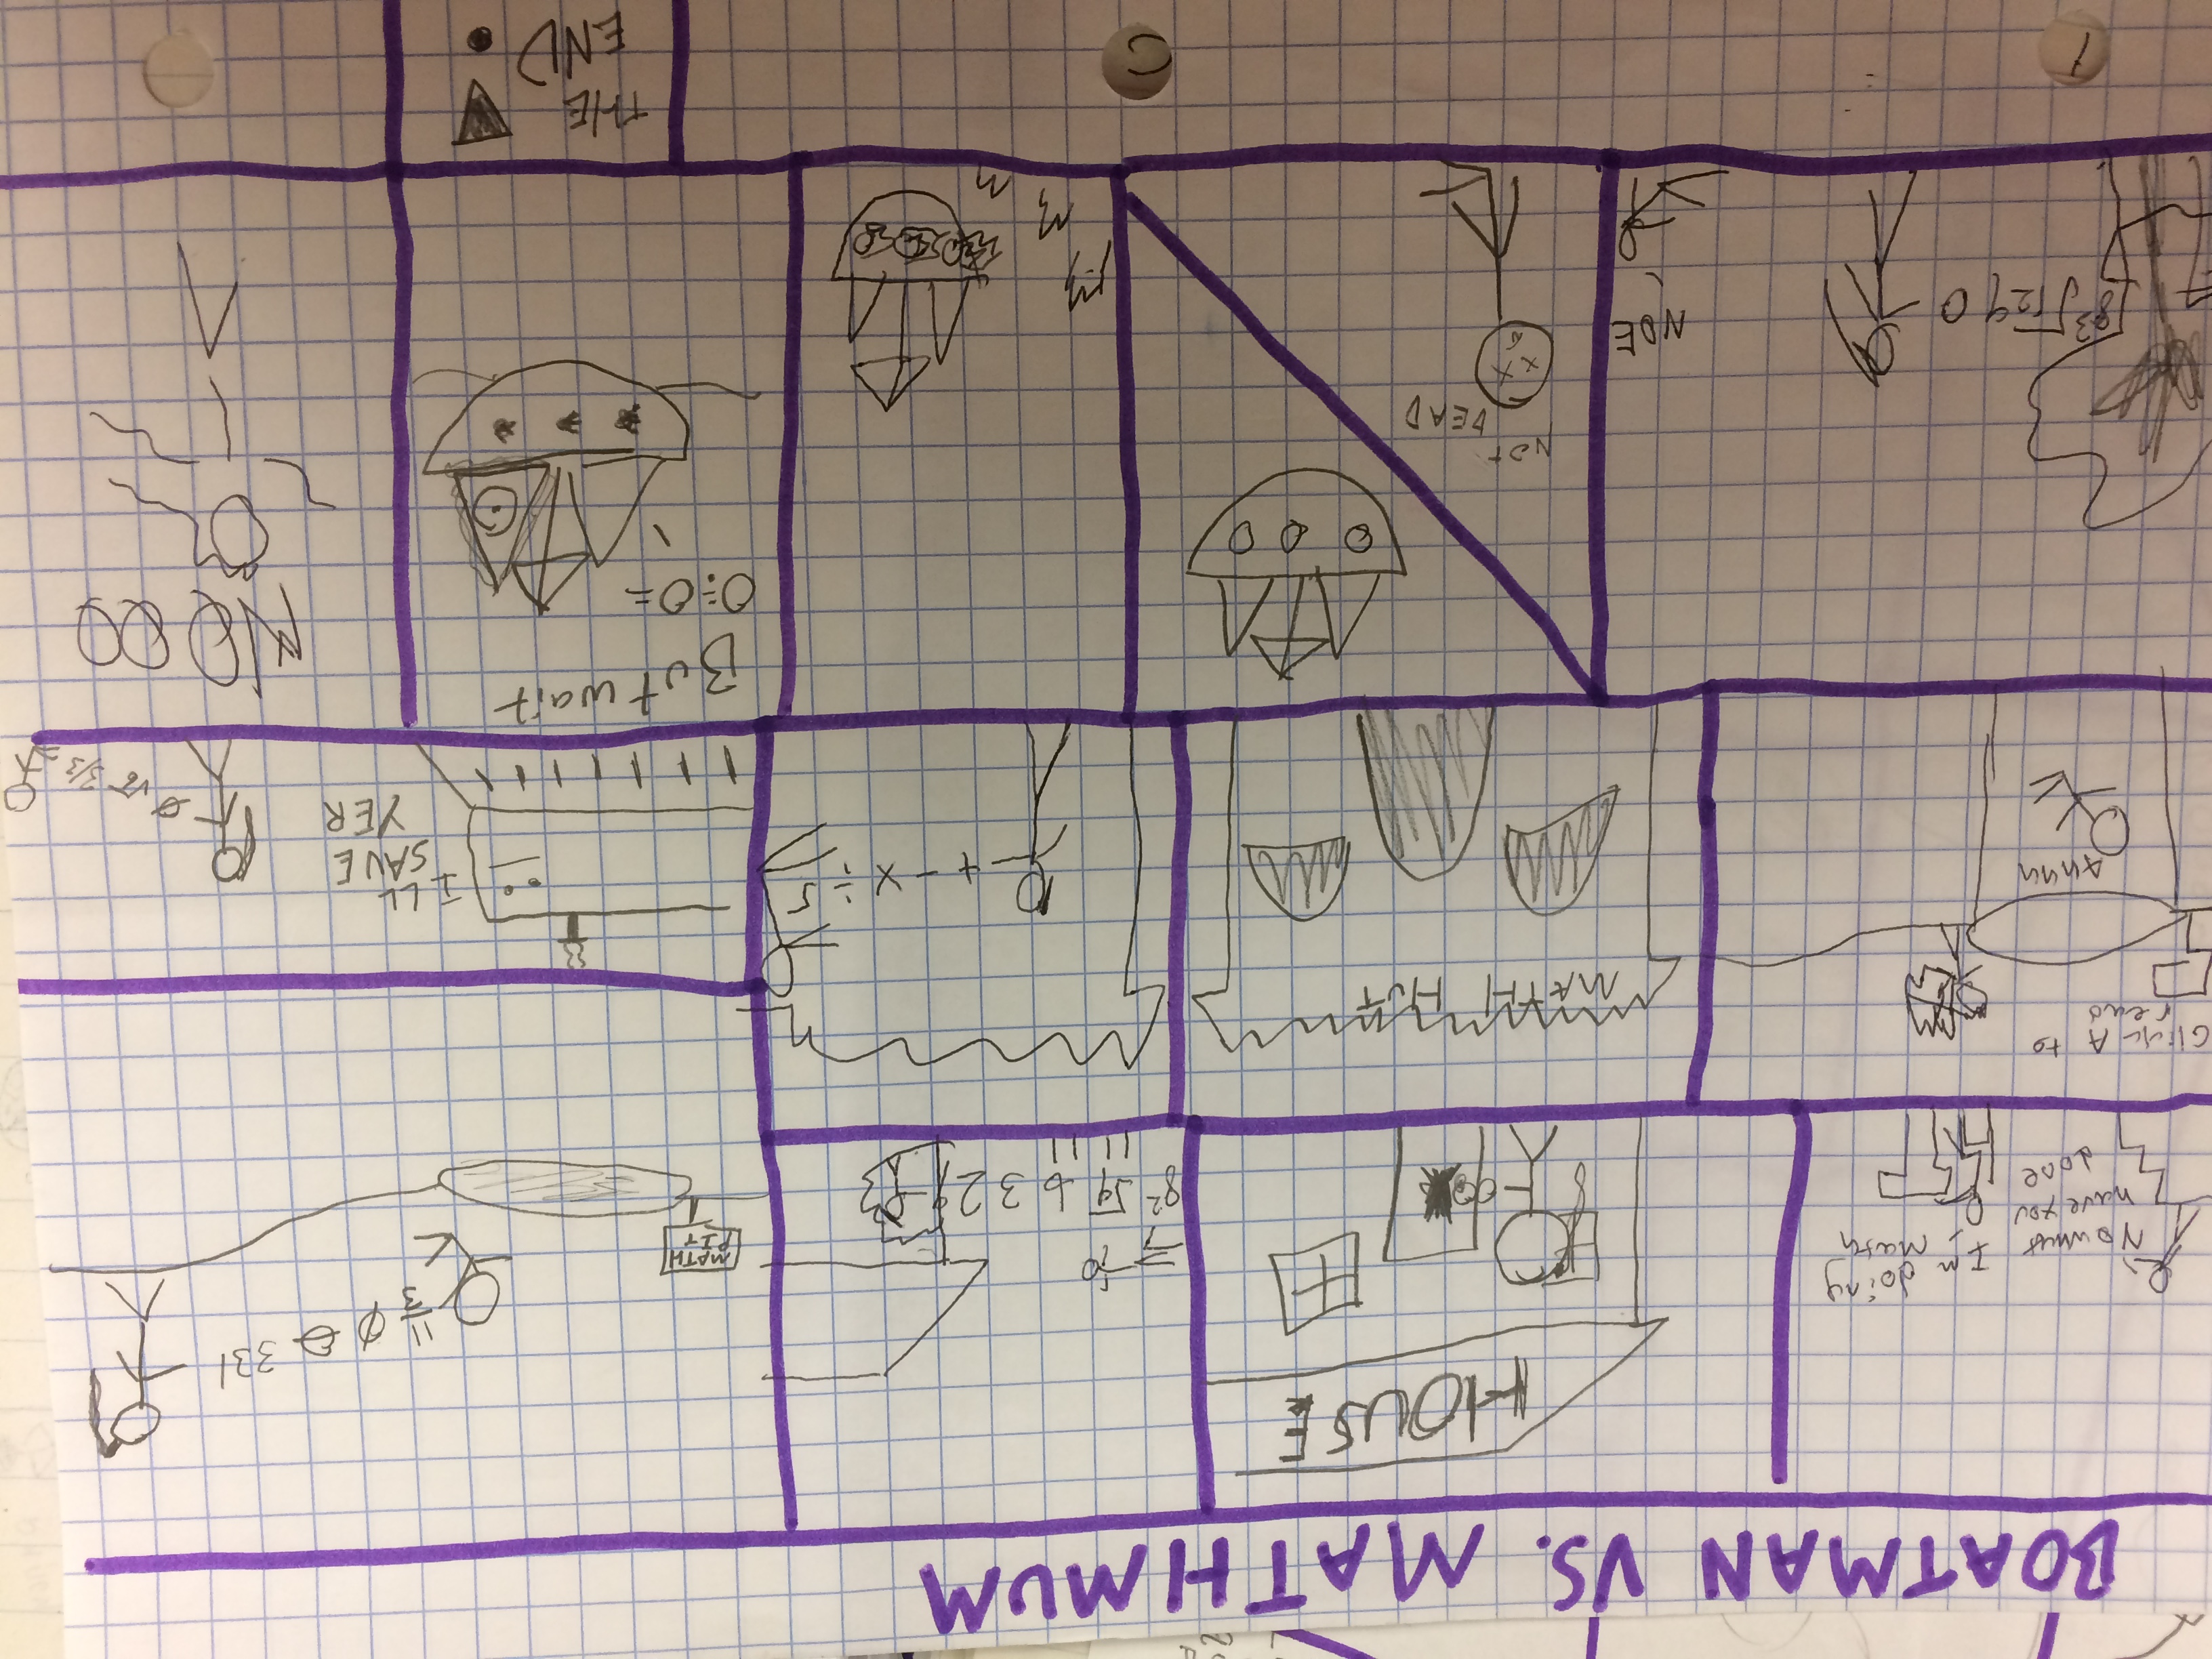 BOATMAN VS. MATHMUM
No what
have you
done
Im doing
math
HOUSE
8² √9 6 3 2 9
MATH
PIT
11/3 Ø ⊖ 331
Click A to
read
Ahhh
MATH HUT
+ - × ÷ 5
ILL
SAVE
YER
3/3
√8³ √129 0
NOE
NOT
DEAD
But wait
NOOO
THE
END!